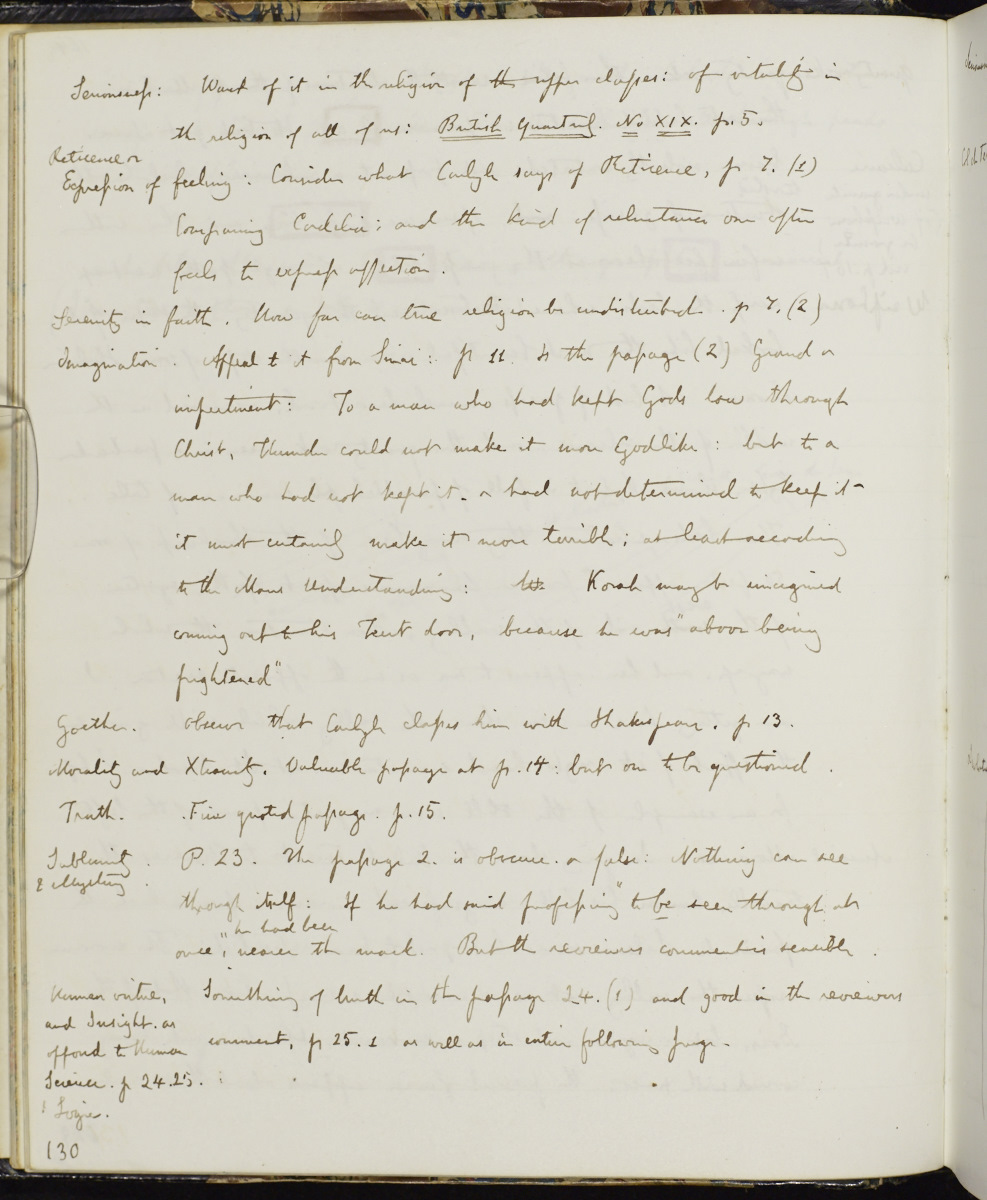 Seriousness: Want of it in the religion of the upper classes: of vitality in
the religion of all of us: British Quarterl. No XIX. p. 5.
Reticence or
Expression of feeling: Consider what Carlyle says of Reticence, p 7. (1)
Comparing Cordelia: and the kind of reluctance one often
feels to express affection.
Serenity in faith. How far can true religion be undisturbed. p 7. (2)
Imagination. Appeal to it from Sinai: p 11. Is the passage (2) Grand or
impertinent: To a man who had kept Gods law through
Christ, Thunder could not make it more Godlike: but to a
man who had not kept it. or had not determined to keep it
it must certainly make it more terrible; at least according
to the Mans Understanding: Korah may be imagined
coming out to his Tent door, because he was "above being
frightened"
Goethe. observe that Carlyle classes him with Shakespeare. p 13.
Morality and Xtianity. Valuable passage at p. 14: but one to be questioned.
Truth. Fine quoted passage. p. 15.
Sublimity.
& Mystery. P. 23. The passage 2. is obscure. or false: Nothing can see
through itself: If he had said professing "to be seen through at
once", he had been nearer the mark. But the reviewers comment is sensible.
Human virtue, Something of truth in the passage 24. (1) and good in the reviewers
and Insight. as
opposed to Human comment, p 25. 1 as well as in entire following page.
Science. p 24.25.
Logic.
130